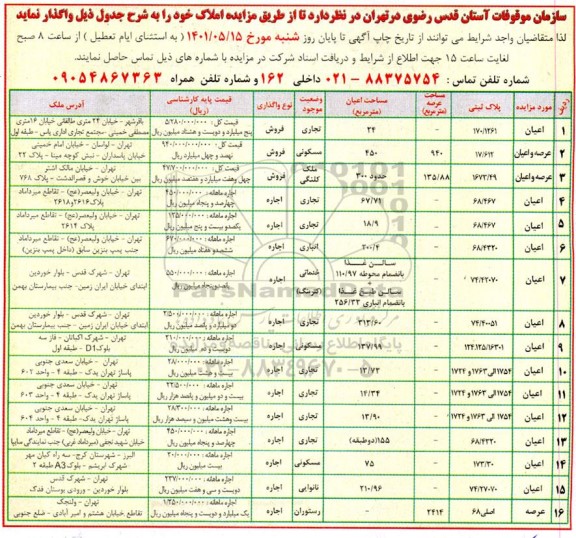 سازمان موقوفات آستان قدس رضوی درتهران در نظردارد تا از طریق مزایده املاک خود را به شرح جدول ذیل واگذار نماید
لذا متقاضیان واجد شرایط می توانند از تاریخ چاپ آگهی تا پایان روز شنبه مورخ ۱۴۰۱/۰۵/۱۵ ( به استثنای ایام تعطیل ) از ساعت ۸ صبح
لغایت ساعت ۱۵ جهت اطلاع از شرایط و دریافت اسناد شرکت در مزایده با شماره های ذیل تماس حاصل نمایند.
شماره تلفن تماس : ۸۸۳۷۵۷۵۴ - ۰۲۱ داخلی ۱۶۲ و شماره تلفن همراه ۰۹۰۵۴۸۶۷۳۶۳
ردیف مورد مزایده پلاک ثبتی مساحت عرصه (مترمربع) مساحت اعیان (مترمربع) وضعیت موجود نوع واگذاری قیمت پایه کارشناسی (ریال) آدرس ملک
۱ اعیان ۱۷۰/۱۲۶۱ - ۲۴ تجاری فروش قیمت کل: ۵/۲۸۰/۰۰۰/۰۰۰
پنج میلیارد و دویست و هشتاد میلیون ریال باقرشهر - خیابان ۲۴ متری طالقانی خیابان ۱۶متری
مصطفی خمینی - مجتمع تجاری اداری یاس - طبقه اول
۲ عرصه و اعیان ۱۷/۶۱۲ ۹۴۰ ۴۵۰ مسکونی فروش قیمت کل: ۹۴۰/۰۰۰/۰۰۰/۰۰۰
نهصد و چهل میلیارد ریال تهران - لواسان - خیابان امام خمینی
خیابان پاسداران - نبش کوچه مینا - پلاک ۲۲
۳ عرصه و اعیان ۶۶۷۲/۴۹ ۱۳۵/۸۸ حدود ۳۰۰ ملک کلنگی فروش قیمت کل: ۴۷/۷۰۰/۰۰۰/۰۰۰
چهل وهفت میلیارد و هفتصد میلیون ریال تهران - خیابان مالک اشتر
بین خیابان خوش و قصرالدشت - پلاک ۷۶۸
۴ اعیان ۶۸/۴۶۷ - ۶۷/۷۱ تجاری اجاره اجاره ماهانه: ۴۵۰/۰۰۰/۰۰۰
چهارصد و پنجاه میلیون ریال تهران - خیابان ولیعصر(عج) - تقاطع میرداماد
پلاک۲۶۱۶و۲۶۱۸
۵ اعیان ۶۸/۴۶۷ - ۱۸/۹ تجاری اجاره اجاره ماهانه: ۱۲۵/۰۰۰/۰۰۰
یکصدو بیست و پنج میلیون ریال تهران - خیابان ولیعصر(عج) - تقاطع میرداماد
پلاک ۲۶۱۴
۶ اعیان ۶۸/۴۳۲۰ - ۲۰۰/۴ انباری اجاره اجاره ماهانه: ۶۷۰/۰۰۰/۰۰۰
ششصدو هفتاد میلیون ریال تهران - خیابان ولیعصر(عج) - تقاطع میرداماد
جنب پمپ بنزین سابق (داخل پمپ بنزین)
۷ اعیان ۷۴/۴۲۰۷۰ - سالن غذا
بانضمام محوطه ۱۱۰/۹۷
+
سالن طبخ غذا
بانضمام انباری ۲۵۶/۳۲ خدماتی
(کترینگ) اجاره اجاره ماهانه: ۵۵۰/۰۰۰/۰۰۰
پانصدوپنجاه میلیون ریال تهران - شهرک قدس - بلوار خوردین
ابتدای خیابان ایران زمین- جنب بیمارستان بهمن
۸ اعیان ۷۴/۴۰۰۵۱ - ۳۱۳/۶۰ تجاری اجاره اجاره ماهانه: ۲/۵۰۰/۰۰۰/۰۰۰
دو میلیارد و پانصد میلیون ریال تهران - شهرک قدس - بلوار خوردین
ابتدای خیابان ایران زمین - جنب بیمارستان بهمن
۹ اعیان ۱۲۴،۱۲۵/۱۶۳۰۱ - ۱۳۷/۹۸ مسکونی اجاره اجاره ماهانه: ۲۱۰/۰۰۰/۰۰۰
دویست و ده میلیون ریال تهران - شهرک اکباتان - فاز سه
بلوک D1 - طبقه اول
۱۰ اعیان ۱۷۵۴الی ۱۷۶۳ و ۱۷۲۴ - ۱۳/۷۲ تجاری اجاره اجاره ماهانه: ۲۸/۰۰۰/۰۰۰
بیست و هشت میلیون ریال تهران - خیابان سعدی جنوبی
پاساژ تهران یدک- طبقه ۴ - واحد ۶۰۲
۱۱ اعیان ۱۷۵۴الی ۱۷۶۳ و ۱۷۲۴ - ۱۴/۳۴ تجاری اجاره اجاره ماهانه: ۲۲/۵۰۰/۰۰۰
بیست و دو میلیون و پانصد هزار ریال تهران - خیابان سعدی جنوبی
پاساژ تهران یدک- طبقه ۴ - واحد ۶۰۳
۱۲ اعیان ۱۷۵۴الی ۱۷۶۳ و ۱۷۲۴ - ۱۳/۹۰ تجاری اجاره اجاره ماهانه: ۲۸/۳۰۰/۰۰۰
بیست وهشت میلیون و سیصد هزار ریال تهران - خیابان سعدی جنوبی
پاساژ تهران یدک- طبقه ۴ - واحد ۶۰۴
۱۳ اعیان ۶۸/۴۲۲۰ - ۱۵۵(دوطبقه) تجاری اجاره اجاره ماهانه: ۴۵۰/۰۰۰/۰۰۰
چهارصد و پنجاه میلیون ریال تهران - خیابان ولیعصر(عج) - تقاطع میرداماد
خیابان شهید نجفی (میرداماد غربی) جنب نمایندگی سایپا
۱۴ اعیان ۱۷۳/۳۰ - ۷۵ مسکونی اجاره اجاره ماهانه: ۲۰/۰۰۰/۰۰۰
بیست میلیون ریال البرز - شهرستان کرج- سه راه کیان مهر
شهرک ابریشم - بلوک A3 طبقه ۲
۱۵ اعیان ۷۴/۲۷۰۷۰ - ۲۱۰/۹۶ نانوایی اجاره اجاره ماهانه: ۲۳۷/۰۰۰/۰۰۰
دویست و سی و هفت میلیون ریال تهران - شهرک قدس
بلوار خوردین - ورودی بوستان فدک
۱۶ عرصه اصلی۶۸ ۲۴۱۴ - رستوران اجاره اجاره ماهانه: ۱/۲۵۰/۰۰۰/۰۰۰
یک میلیارد و دویست و پنجاه میلیون ریال تهران - ولنجک
تقاطع خیابان هشتم و امیر آبادی - ضلع جنوبی